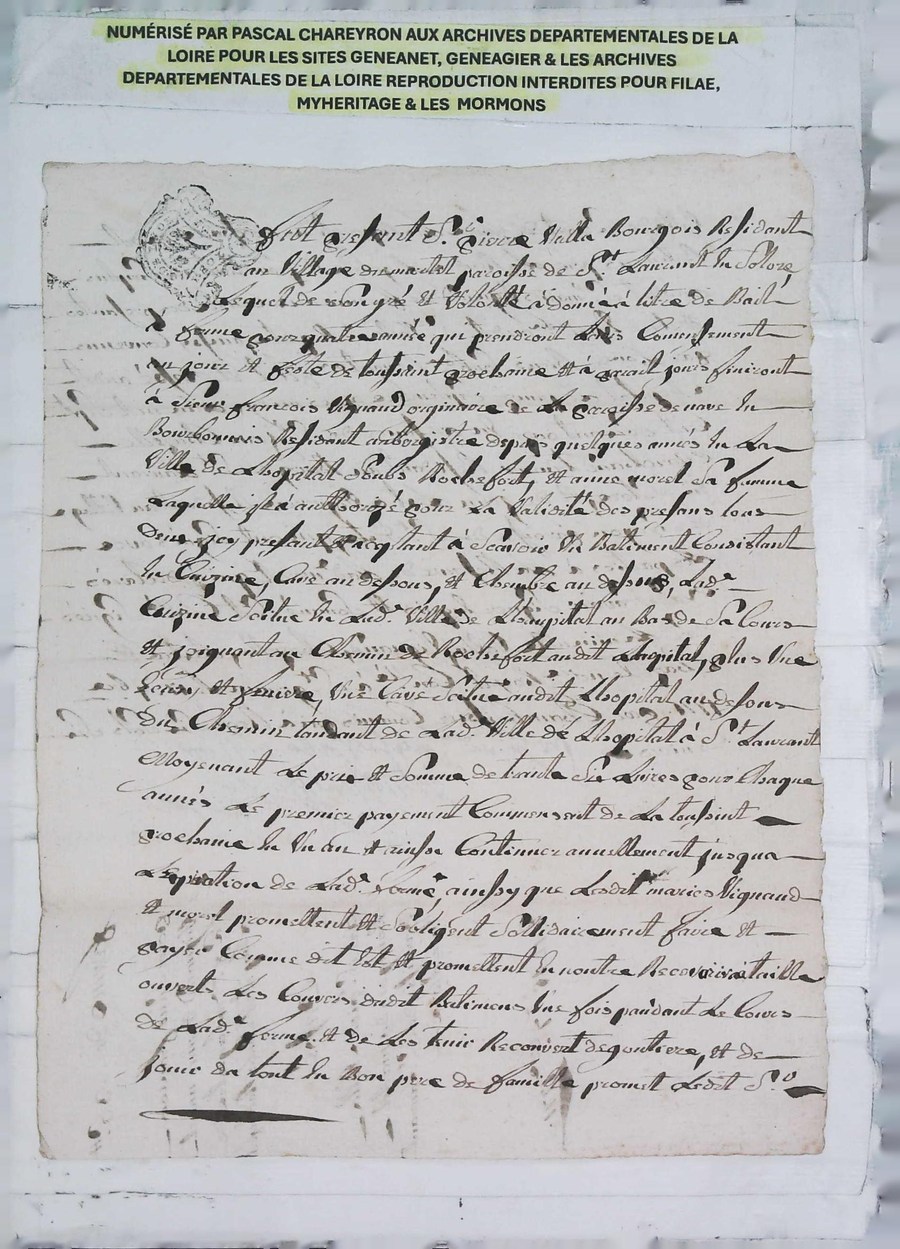 NUMÉRISÉ PAR PASCAL CHAREYRON AUX ARCHIVES DEPARTEMENTALES DE LA
LOIRE POUR LES SITES GENEANET, GENEAGIER & LES ARCHIVES
DEPARTEMENTALES DE LA LOIRE REPRODUCTION INTERDITES POUR FILAE,
MYHERITAGE & LES MORMONS
fust present Sr. pierre Villa Bourgois Residant
au Village du martel paroisse de St. Laurent En Sollore,
Lequel de son gré Et Volonté à donné à titre de Bail
à ferme pour quatre année qui prendront Leurs Comensement
au jour Et feste de toussaint prochaine Et à pareil jours finiront
à Sieur francois Vignaud originaire de La paroisse de nave En
Bourbonnois Residant depuis quelques annés En La
Ville de Lhopital Soubs Rochefort, Et anne morel Sa femme
Laquelle il à authorizé pour La Validité des presans tous
Deux icy presant Et acqptant à Scavoir Un Batiment Consistant
En Cuizine, Cave au desous, Et Chambre au desus, Lade.
Cuizine Scitue En Lade. Ville de Lhospital au Bas de Sa Cours
Et joignant au Chemin de Rochefort audit Lhopital, plus Une
Ecury Et feniere, Une Cave Scitué audit Lhopital au desous
du Chemin tandant de Lade. Ville de Lhopital à St. Laurant
Moyenant Le prix Et Somme de trante Six Livres pour Chaque
annés Le premier payement Commensent de La tousint
prochaine En Un an Et ainsy Continuer annuellement jusqua
Lexpiration de Lade. ferme, ainssy que Lesdit mariés Vignaud
Et morel promettent Et Sobligent Sollidairement faire Et
payer Comme dit Est Et promettent En noutre Recouvrir à taille
ouverte Les Couvers dudit Batimens Une fois pandant Le Cours
de Lade. ferme. Et de Les tenir Recouvert de goutiere, Et de
jouir du tout En Bon pere de famille promet Ledit Sr.